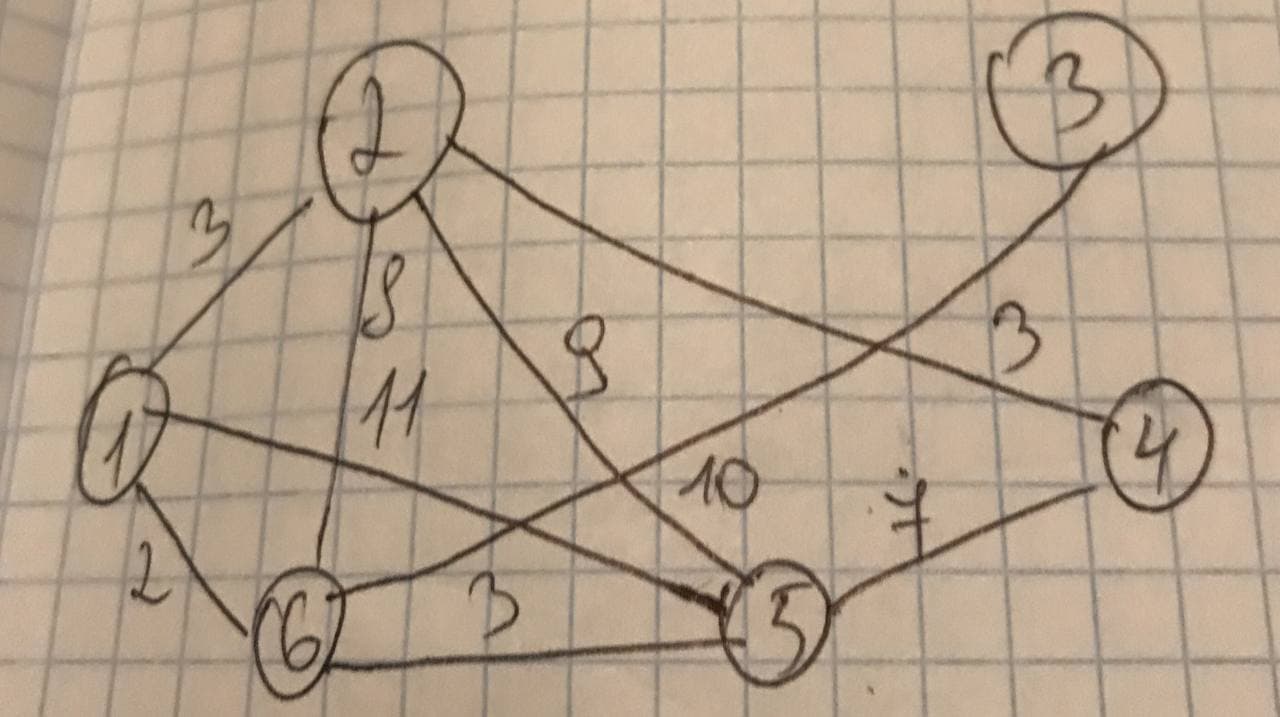 2
3
3
8
9
3
11
1
4
10
7
2
3
6
5